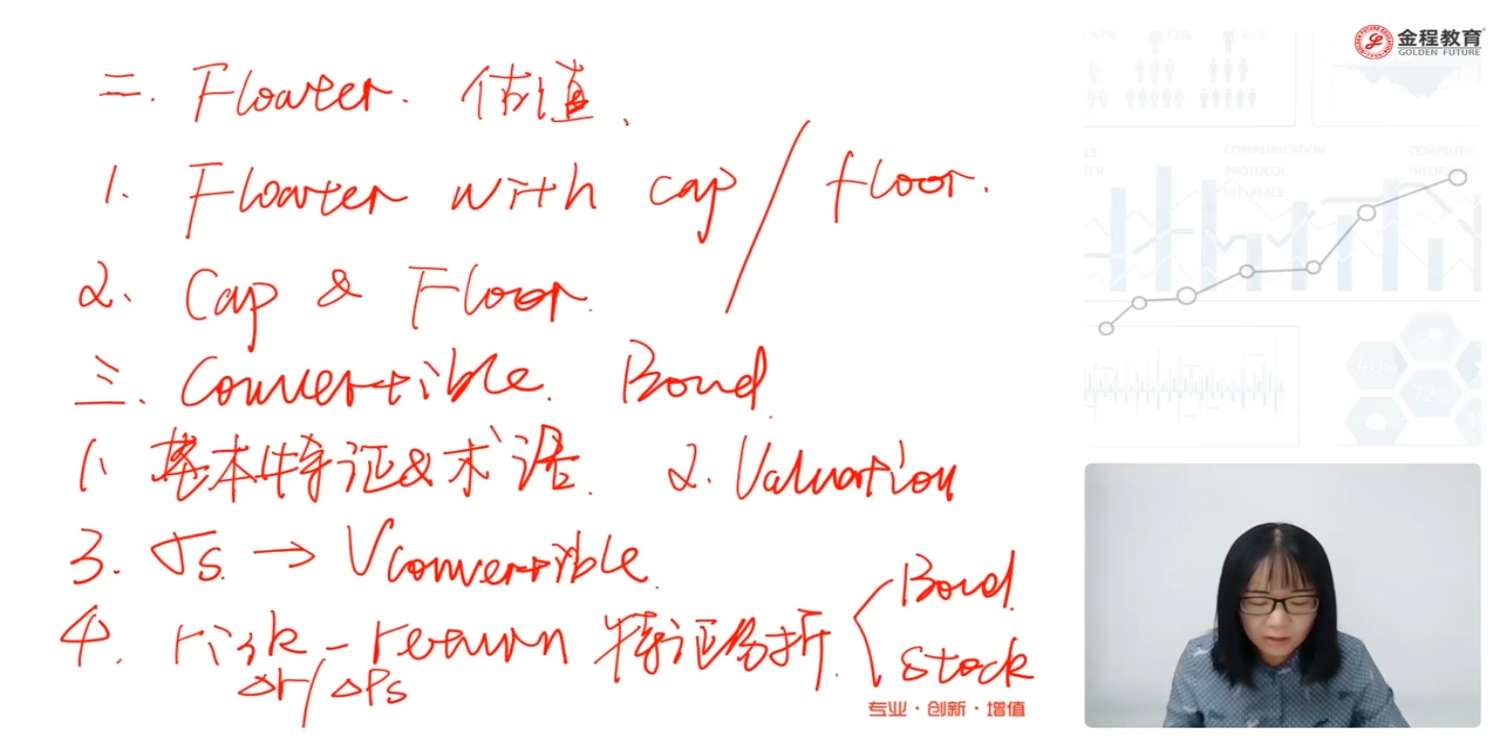 金程教育
GOLDEN FUTURE
二. Floater. 估值.
1. Floater with cap / floor.
2. Cap & Floor.
三. Convertible. Bond.
1、基本特征&术语. 2. Valuation
3. σs. → Vconvertible.
4. risk-return 特征分析. Bond.
Δr/ΔPs Stock
专业·创新·增值